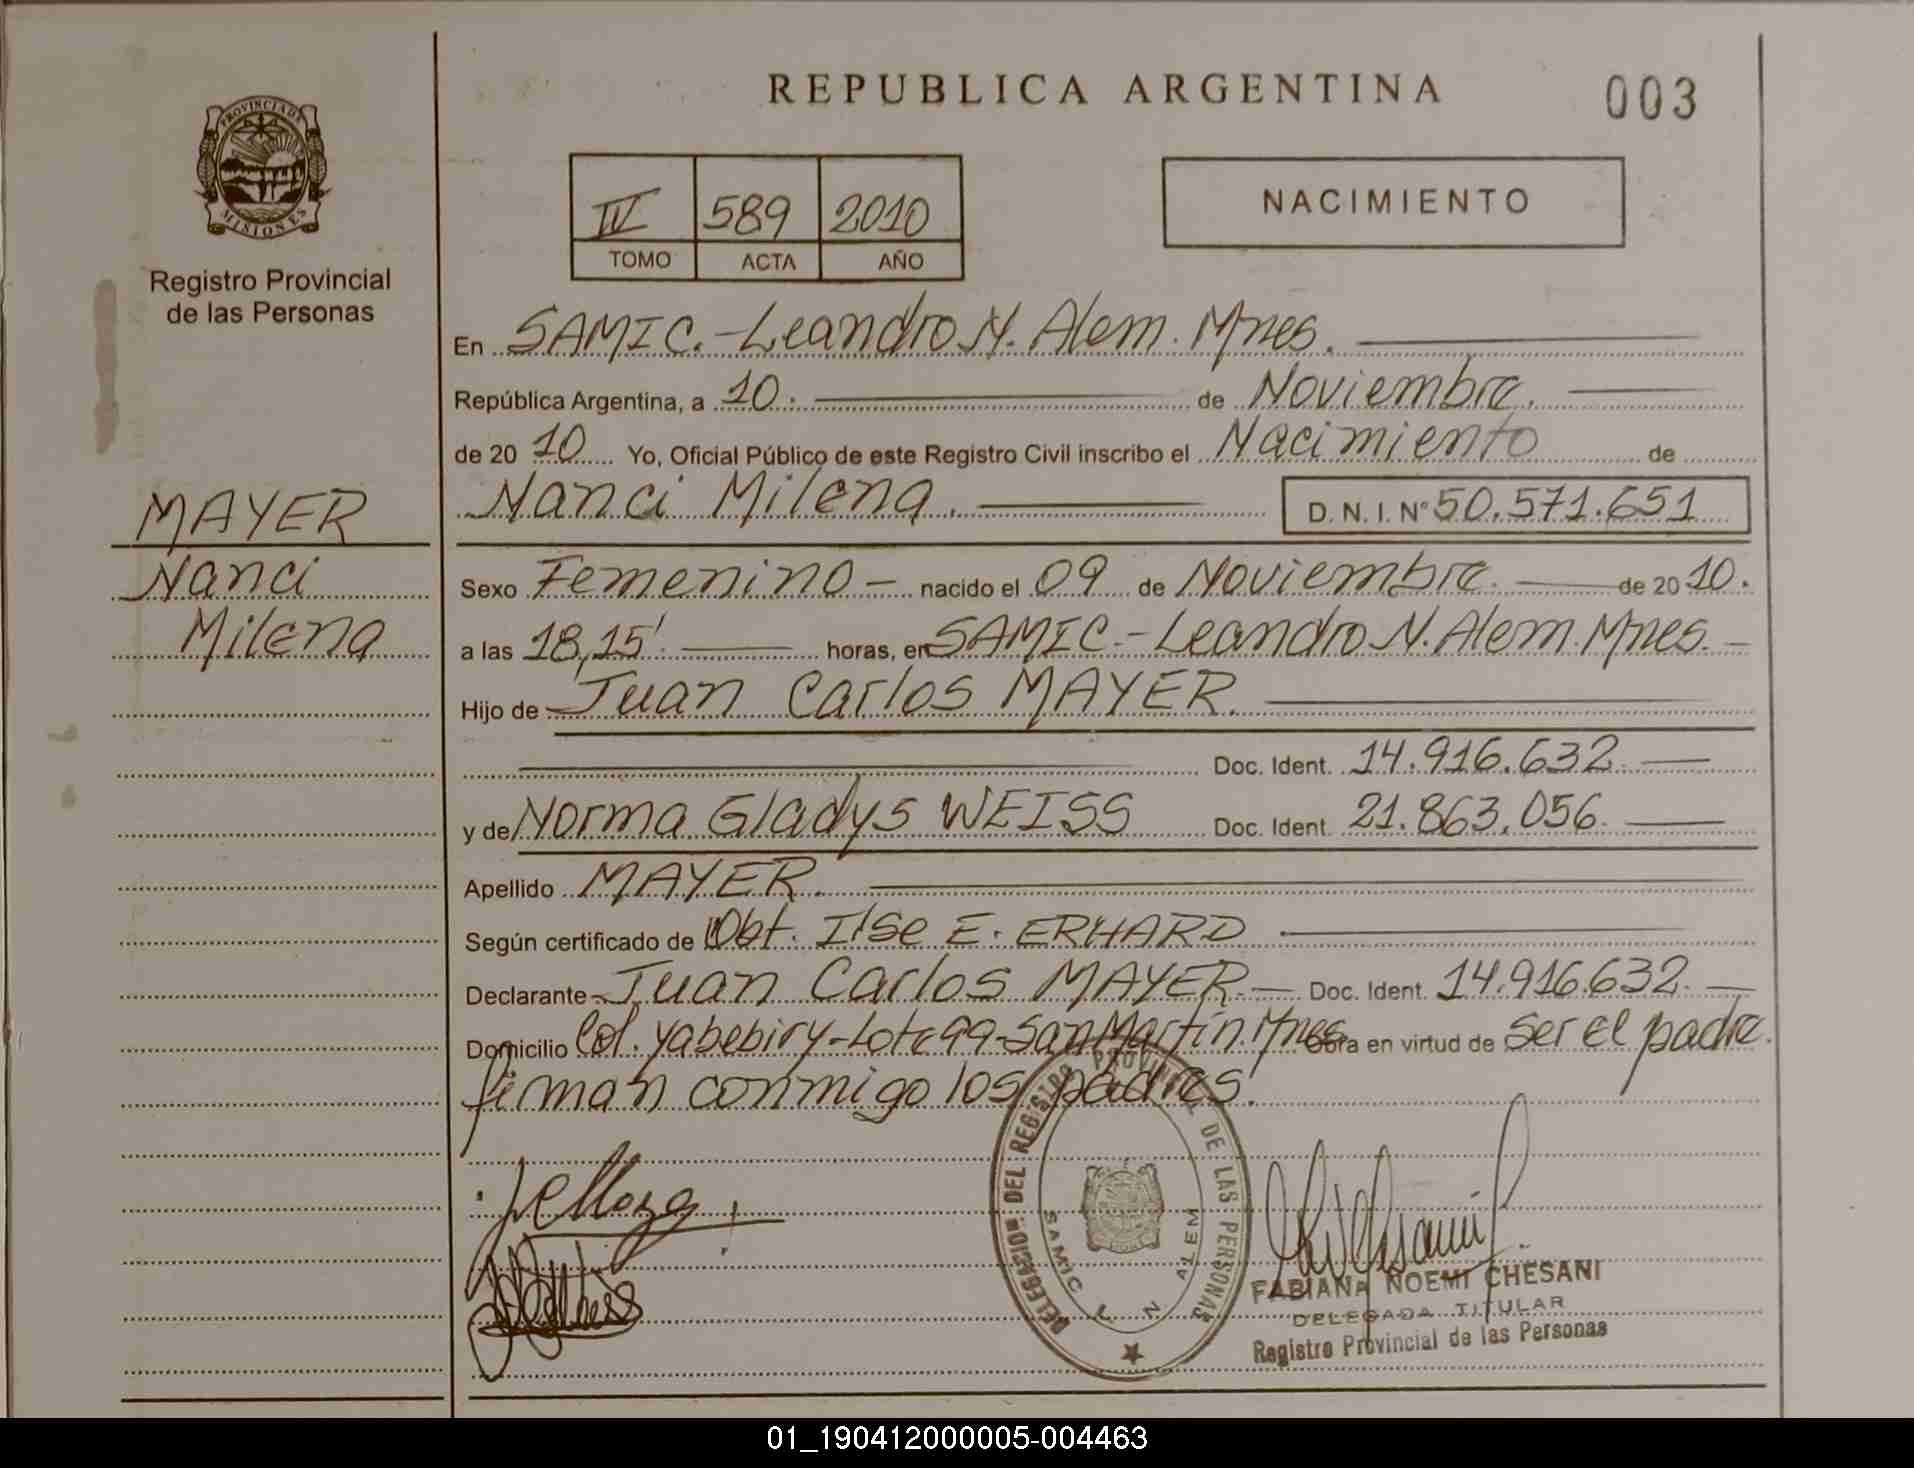 REPUBLICA ARGENTINA
003
PROVINCIA DE
MISIONES
Registro Provincial
de las Personas
IV 589 2010
TOMO ACTA AÑO
NACIMIENTO
MAYER
Nanci
Milena
En SAMIC.-Leandro N. Alem. Mnes.
República Argentina, a 10. de Noviembre.
de 2010 Yo, Oficial Público de este Registro Civil inscribo el Nacimiento de
Nanci Milena. D. N. I. N° 50.571.651
Sexo Femenino - nacido el 09 de Noviembre. de 2010.
a las 18,15' horas, en SAMIC.-Leandro N. Alem. Mnes.-
Hijo de Juan Carlos MAYER.
Doc. Ident. 14.916.632.
y de Norma Gladys WEISS Doc. Ident. 21.863.056.
Apellido MAYER.
Según certificado de Obt. Ilse E. ERHARD
Declarante Juan Carlos MAYER.- Doc. Ident. 14.916.632.
Domicilio Col. Yabebiry-Lote 99-San Martín. Mnes. Obra en virtud de ser el padre.
firman conmigo los padres.
DELEGACION DEL REGISTRO PROVINCIAL DE LAS PERSONAS
SAMIC L N ALEM
FABIANA NOEMI CHESANI
DELEGADA TITULAR
Registro Provincial de las Personas
01_190412000005-004463